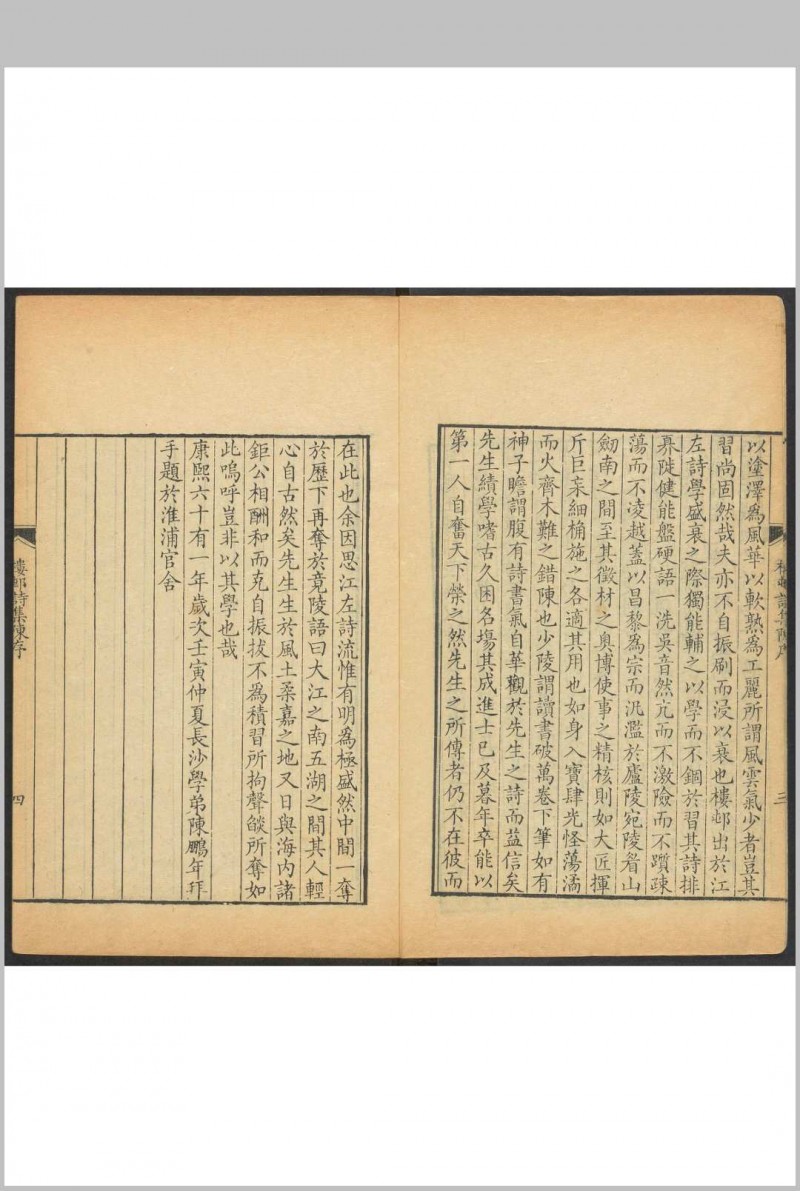 以塗澤爲風華以軟熟爲工麗所謂風雲氣少者豈其
習尚固然哉夫亦不自振刷而浸以衰也樓邨出於江
左詩學盛衰之際獨能輔之以學而不錮於習其詩排
奡陡健能盤硬語一洗吳音然亢而不激險而不躓疎
蕩而不凌越蓋以昌黎爲宗而汎濫於廬陵宛陵眉山
劒南之間至其徵材之奥博使事之精核則如大匠揮
斤巨杗細桷施之各適其用也如身入寶肆光怪蕩潏
而火齊木難之錯陳也少陵謂讀書破萬卷下筆如有
神子瞻謂腹有詩書氣自華觀於先生之詩而益信矣
先生績學嗜古久困名塲其成進士已及暮年卒能以
第一人自奮天下榮之然先生之所傳者仍不在彼而
三
在此也余因思江左詩流惟有明爲極盛然中間一奪
於歷下再奪於竟陵語曰大江之南五湖之間其人輕
心自古然矣先生生於風土柔嘉之地又日與海内諸
鉅公相酬和而克自振拔不爲積習所拘聲燄所奪如
此嗚呼豈非以其學也哉
康熙六十有一年歲次壬寅仲夏長沙學弟陳鵬年拜
手題於淮浦官舍
樓邨詩集陳序
四